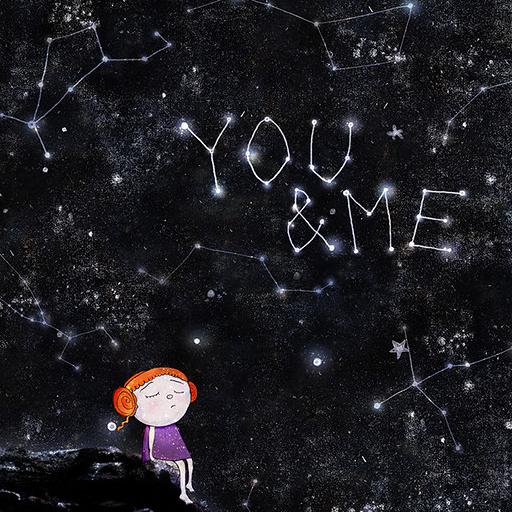 YOU
&ME